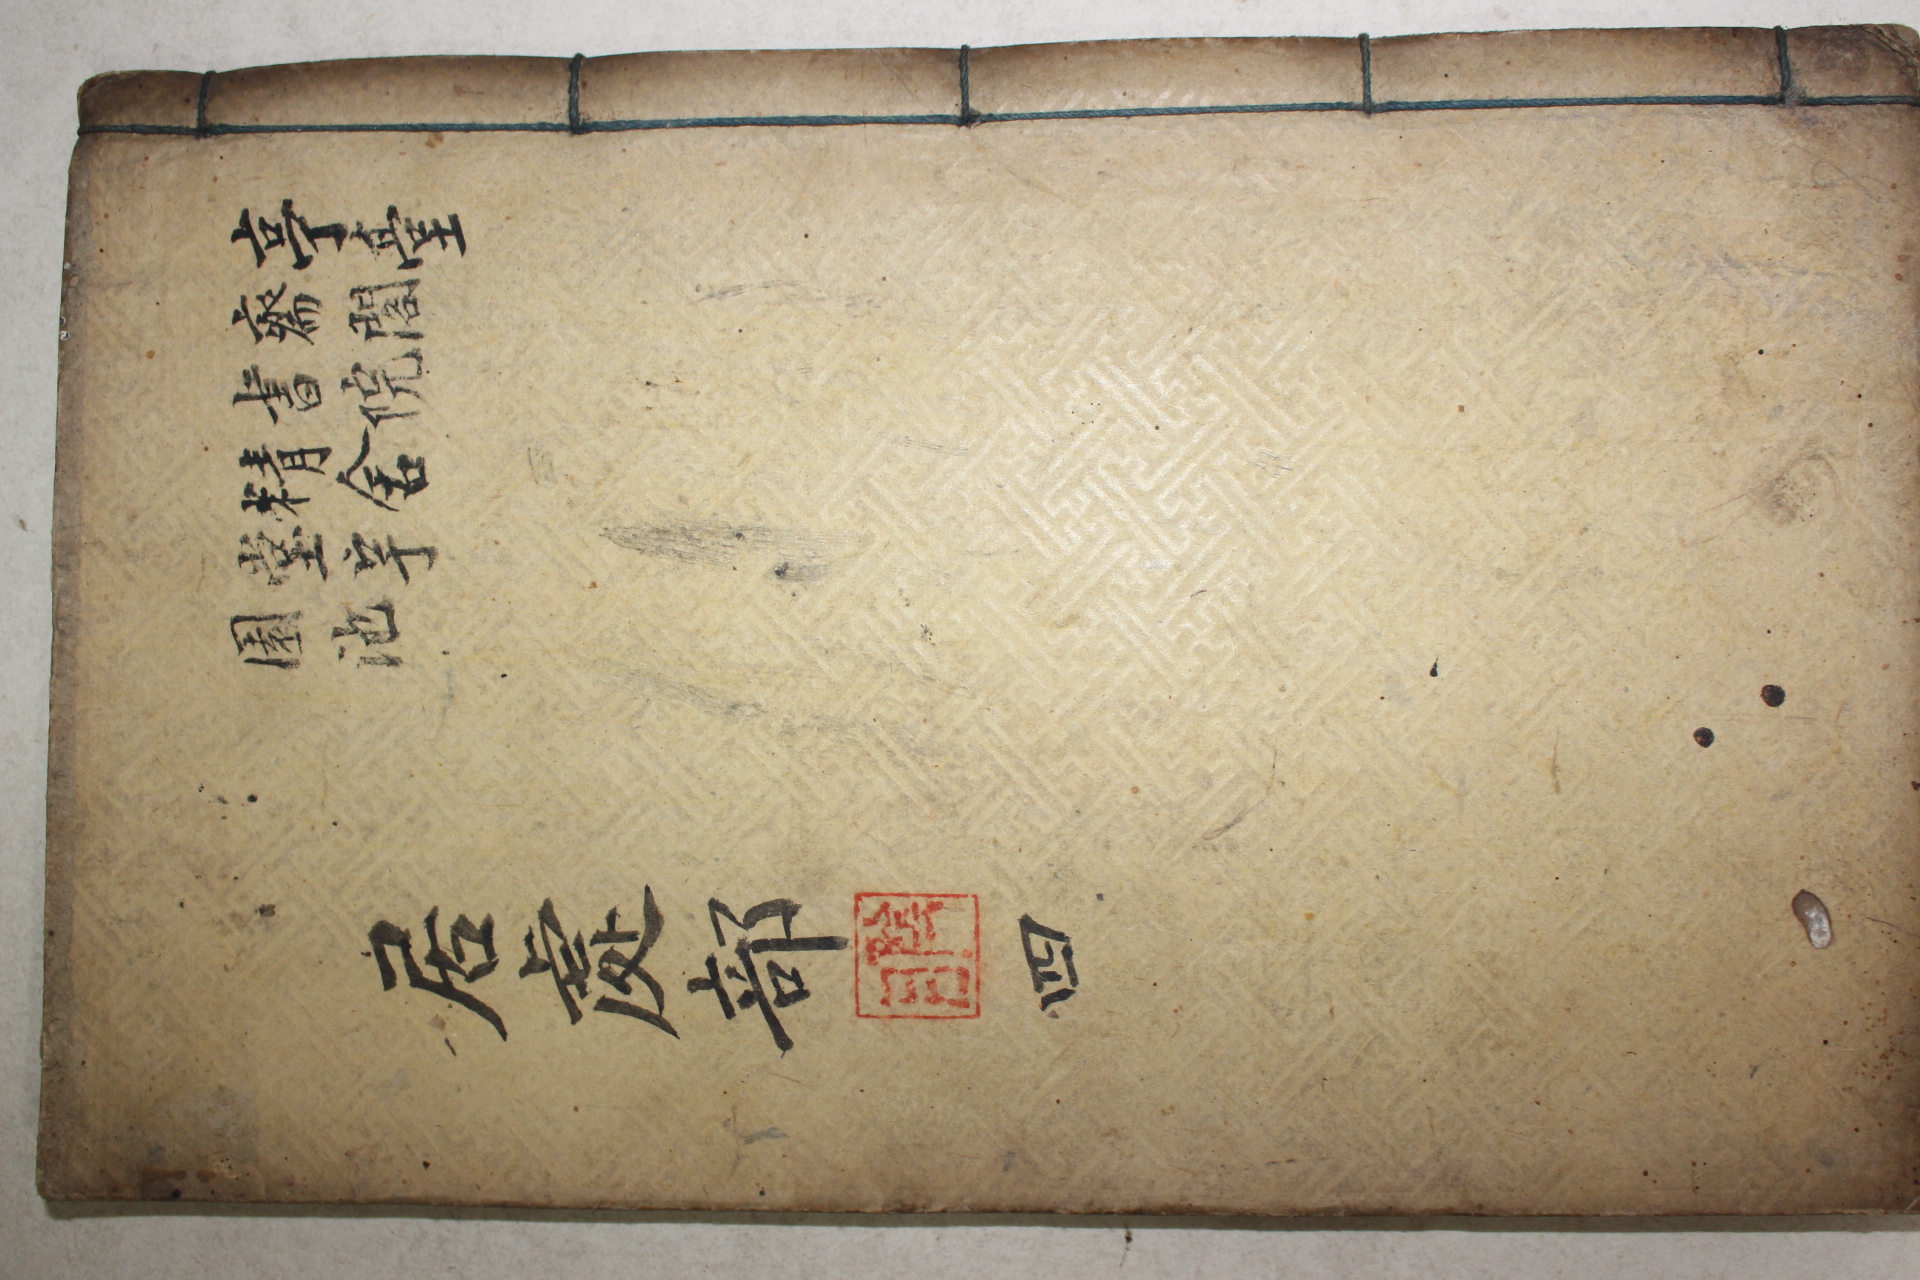 亭臺
齋閣
書院
精舍
堂宇
園池
居處部
四